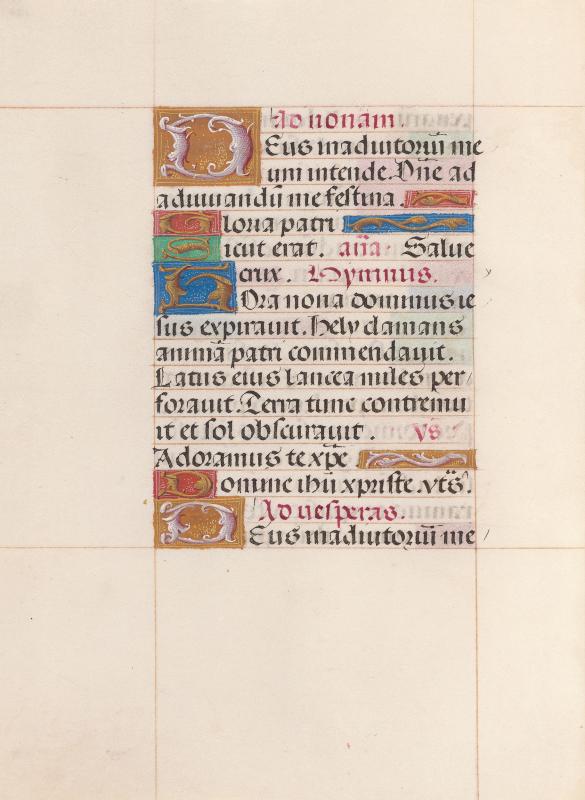 Ad nonam.
Deus in adiutoriũ me
um intende. Dñe ad
adiuuandũ me festina.
Gloria patri
Sicut erat. añа Salue
crux. Hymnus.
Hora nona dominus ie
sus expirauit. Hely clamans
animã patri commendauit.
Latus eius lancea miles per/
forauit. Terra tunc contremu
it et sol obscurauit. Vs
Adoramus te xpe
Domine ihũ xpriste. vts̃.
Ad uesperas.
Deus in adiutoriũ me